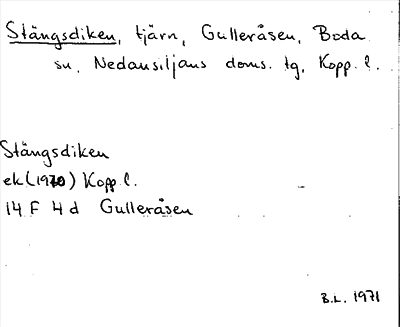 Stängsdiken, tjärn, Gulleråsen, Boda
sn, Nedansiljans doms. tg, Kopp. l.
Stängsdiken
ek (1970) Kopp. l.
14 F 4 d Gulleråsen
B.L. 1971